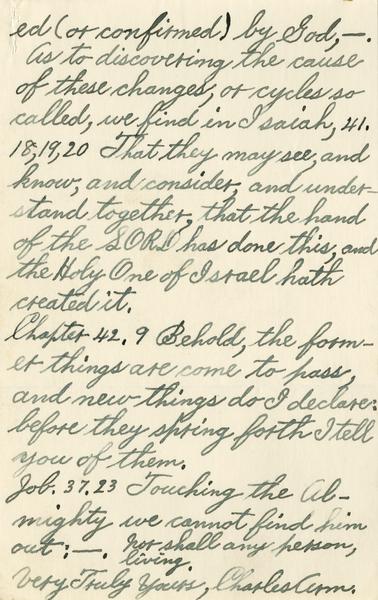 ed (or confirmed) by God,—.
As to discovering the cause
of these changes, or cycles so
called, we find in Isaiah, 41.
18,19,20 That they may see, and
know, and consider, and under-
stand together, that the hand
of the LORD has done this, and
the Holy One of Israel hath
created it.
Chapter 42. 9 Behold, the form-
er things are come to pass,
and new things do I declare:
before they spring forth I tell
you of them.
Job. 37.23 Touching the Al-
mighty we cannot find him
out:—. nor shall any person,
living.
Very Truly Yours, Charles Arm.